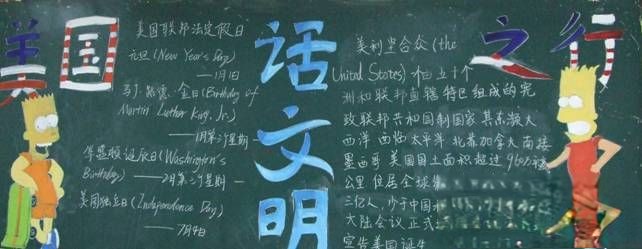 美国
美国联邦法定假日
元旦(New Year's Day)
——1月1日
马丁·路德·金日(Birthday of
Martin Luther King, Jr.)
——1月第三个星期一
华盛顿诞辰日(Washington's
Birthday)——2月第三个星期一
美国独立日(Independence Day)
——7月4日
话文明
之行
美利坚合众(the
United States) 由五十个
州和联邦直辖特区组成的宪
政联邦共和国制国家 其东濒大
西洋 西临太平洋 北靠加拿大 南接
墨西哥 美国国土面积超过
公里 位居全球
三亿人,少于中国
大陆会议正式
宣告美国诞生